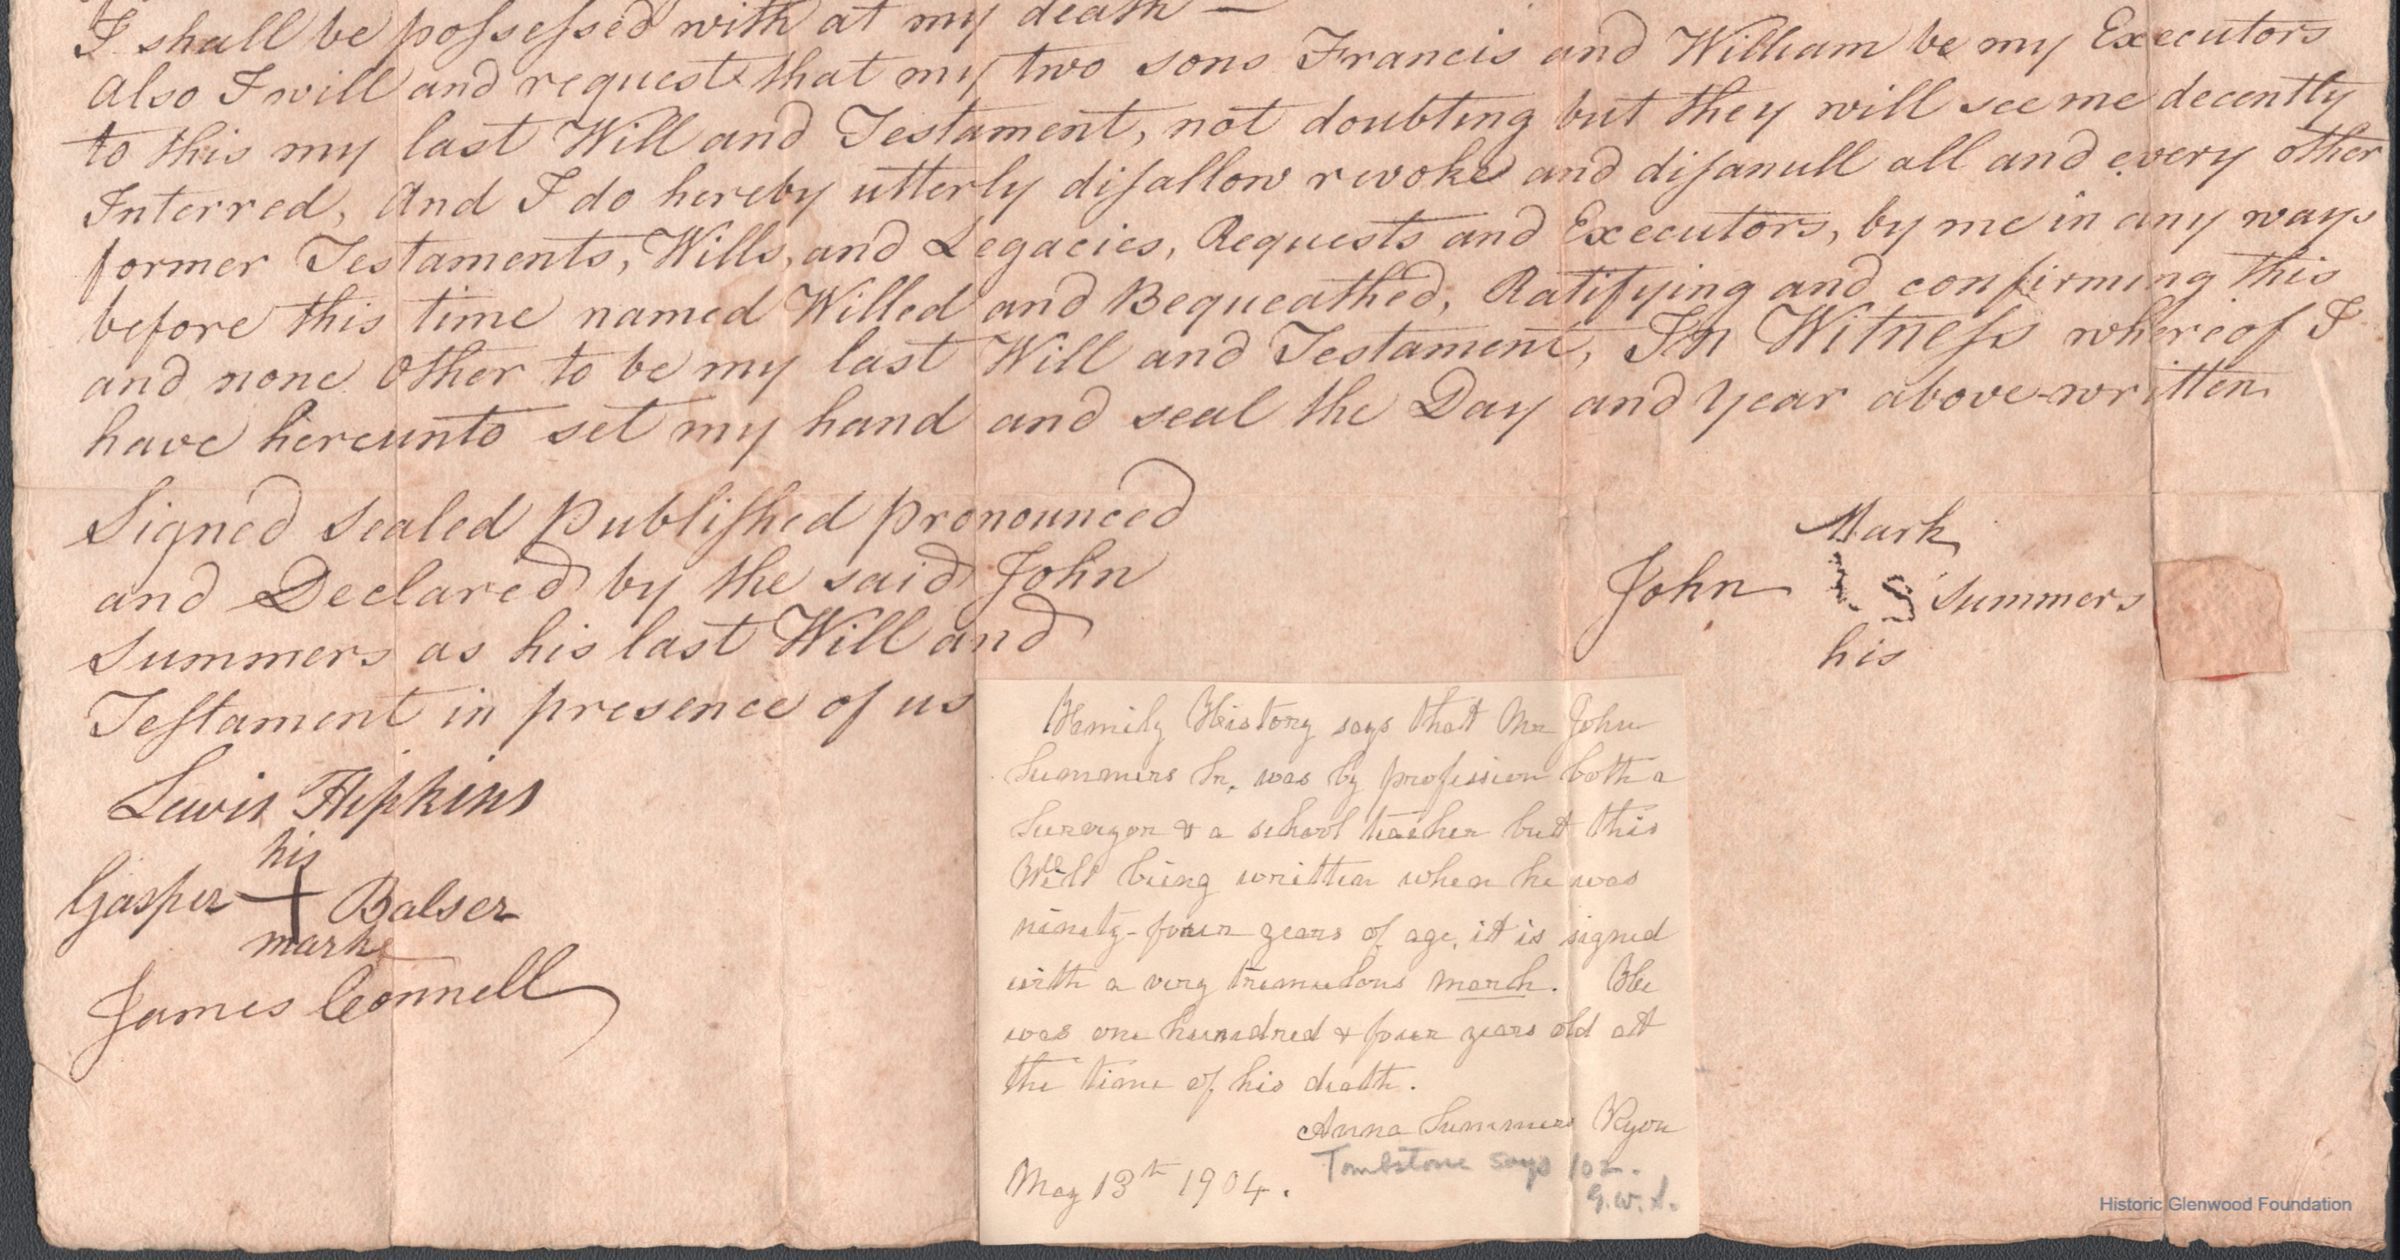 I shall be possessed with at my death —
Also I will and request that my two sons Francis and William be my Executors
to this my last Will and Testament, not doubting but they will see me decently
Interred, And I do hereby utterly disallow revoke and disanull all and every other
former Testaments, Wills, and Legacies, Requests and Executors, by me in any ways
before this time named Willed and Bequeathed, Ratifying and confirming this
and none other to be my last Will and Testament, In Witness whereof I
have hereunto set my hand and seal the Day and Year above written
Signed Sealed Published pronounced
and Declared by the said John
Summers as his last Will and
Testament in presence of us
Lewis Hipkins
his
Gasper + Balser
mark
James Connell
Mark
John Summers
his
Family History says that Mr John
Summers Sr. was by profession both a
Surveyor & a school teacher but this
Will being written when he was
ninety-four years of age, it is signed
with a very tremulous mark. He
was one hundred & four years old at
the time of his death.
Anna Summers Ryon
May 13th 1904.
Tombstone says 102.
G.W.S.
Historic Glenwood Foundation